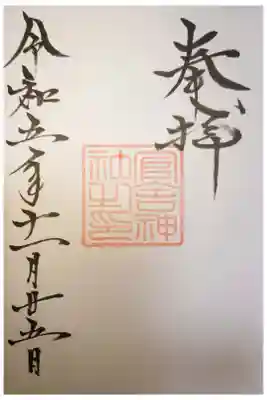 奉拝
吉神
社之印
令和五年十一月廿五日